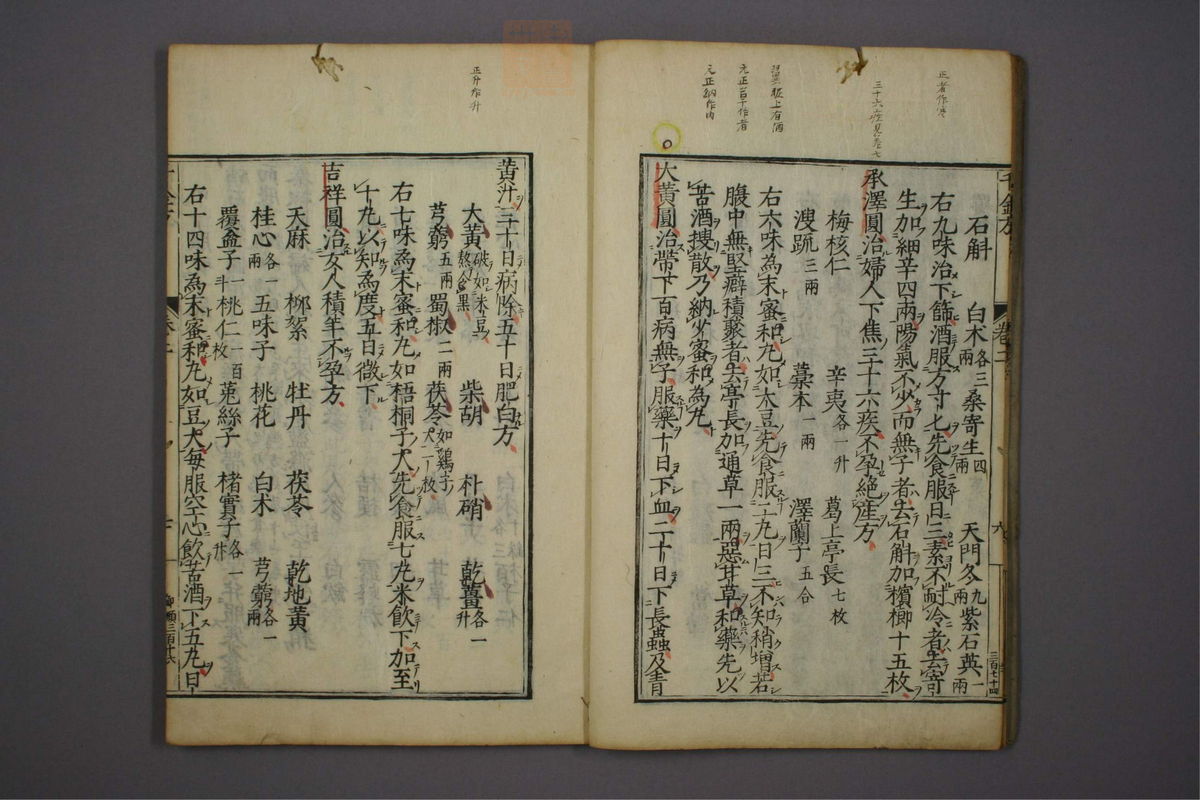 正者作守
三十六疾見卷七
服上有酒
元正若下作者
元正納作內
千金方
卷二
六
三百七十四
石斛 白朮各三兩 桑寄生四兩 天門冬九兩 紫石英一兩
右九味治下篩酒服方寸匕先食服日三素不耐冷者去寄
生加細辛四兩陽氣不少而無子者去石斛加檳榔十五枚
承澤圓治婦人下焦三十六疾不孕絕產方
梅核仁 辛夷各一升 葛上亭長七枚
溲疏三兩 藁本一兩 澤蘭子五合
右六味為末蜜和丸如大豆先食服二丸日三不知稍增若
腹中無堅癖積聚者去亭長加通草一兩惡甘草和藥先以
苦酒搜散乃納少蜜和為丸
大黃圓治帶下百病無子服藥十日下血二十日下長蟲及青
正升作升
黃汁三十日病除五十日肥白方
大黃破如米豆熬令黑 柴胡 朴硝 乾薑各一升
芎藭五兩 蜀椒二兩 茯苓如雞子大一枚
右七味為末蜜和丸如梧桐子大先食服七丸米飲下加至
十丸以知為度五日微下
吉祥圓治女人積年不孕方
天麻 柳絮 牡丹 茯苓 乾地黃
桂心各一兩 五味子 桃花 白朮 芎藭各一兩
覆盆子一斗 桃仁一百枚 菟絲子 楮實子各一升
右十四味為末蜜和丸如豆大每服空心飲苦酒下五丸日
千金方
卷二
七